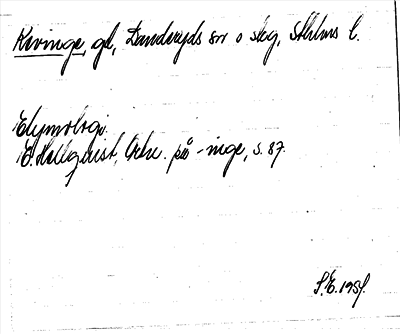 Kevinge, gd, Danderyds sn o skg, Sthlms l.
Etymologi.
E. Hellquist, Ortn. på -inge, s. 87.
S.E. 195